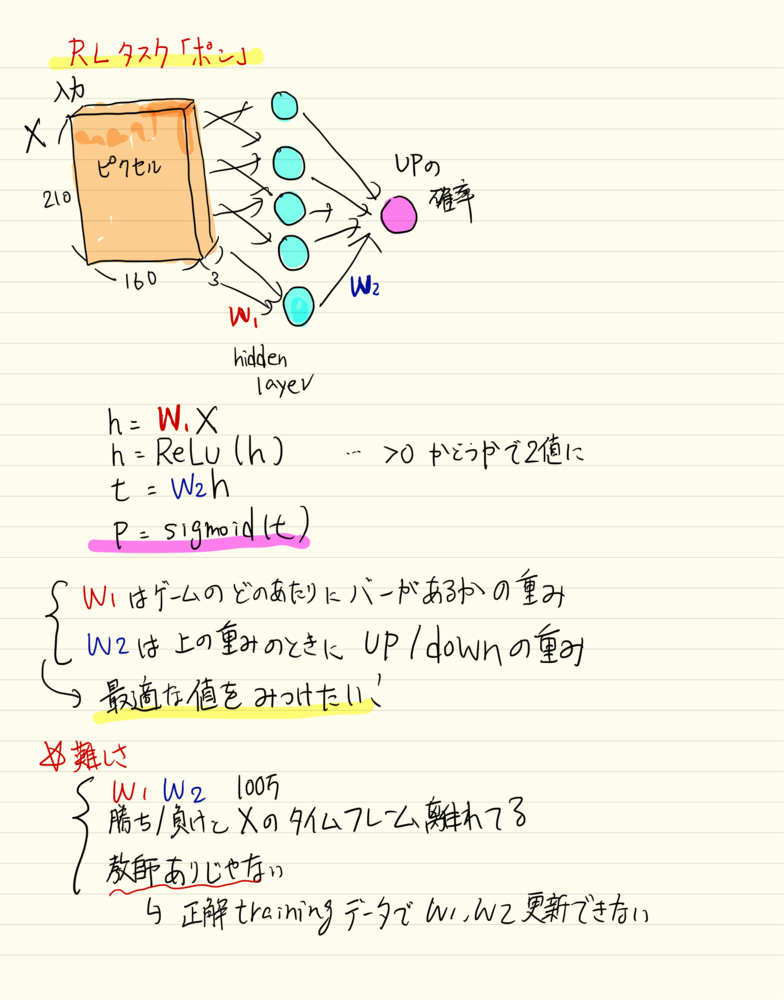 RLタスク「ポン」
入力
X
ピクセル
210
160
3
UPの
確率
W1
W2
hidden
layer
h = W1 X
h = ReLu (h) … >0 かどうかで2値に
t = W2 h
P = sigmoid(t)
W1 はゲームのどのあたりにバーがあるかの重み
W2 は上の重みのときに UP/downの重み
最適な値をみつけたい!
☆難しさ
W1 W2 100万
勝ち/負けと Xのタイムフレーム離れてる
教師ありじゃない
↳ 正解trainingデータで W1,W2 更新できない